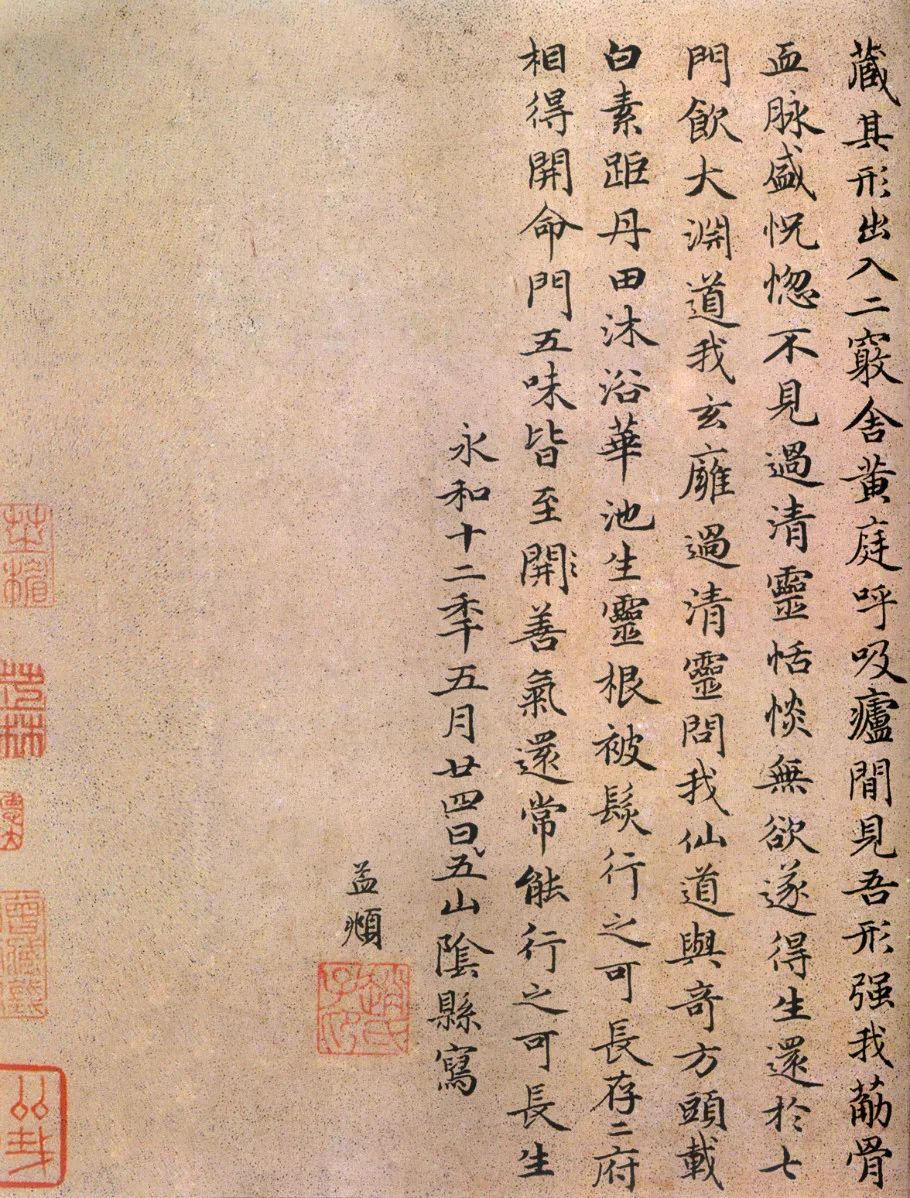 藏其形出入二竅舍黄庭呼吸廬間見吾形强我筋骨
血脉盛怳惚不見過清靈恬惔無欲遂得生還於七
門飲大淵道我玄廱過清靈問我仙道與奇方頭載
白素距丹田沐浴華池生靈根被髮行之可長存二府
相得開命門五味皆至開善氣還常能行之可長生
永和十二年五月廿四日五山陰縣寫
孟頫
趙氏子昂